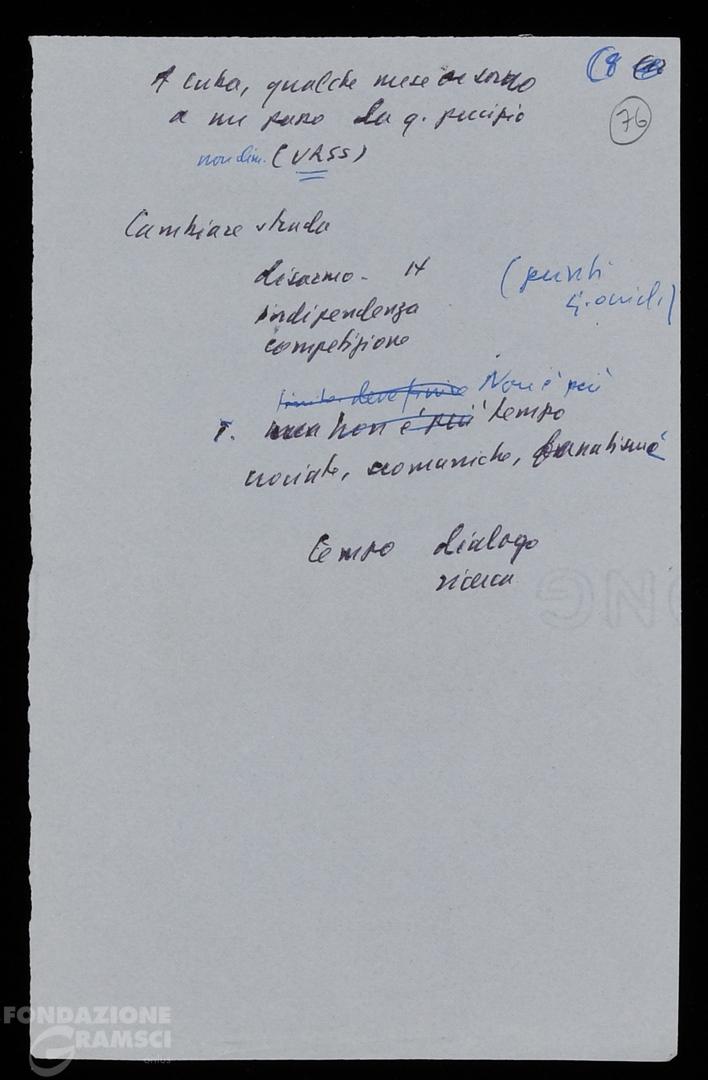 (8
76
A Cuba, qualche mese or sono
a un passo da g.
non dim. (URSS)
Cambiare strada
disarmo - 14
(punti
indipendenza
competizione
deve finire Non è più
T. ma non è più tempo
crociate, scomuniche, fanatismi
tempo dialogo
ricerca
ONG
FONDAZIONE
GRAMSCI
onlus